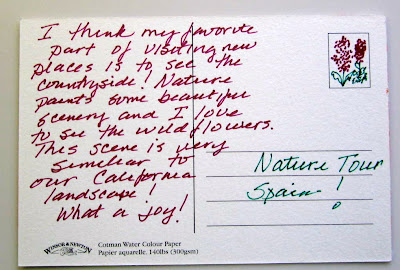 I think my favorite
part of visiting new
places is to see the
countryside! Nature
paints some beautiful
scenery and I love
to see the wildflowers.
This scene is very
similiar to
our California
landscape!
What a joy!
Nature Tour
Spain!
WINSOR & NEWTON
Cotman Water Colour Paper
Papier aquarelle. 140lbs (300gsm)